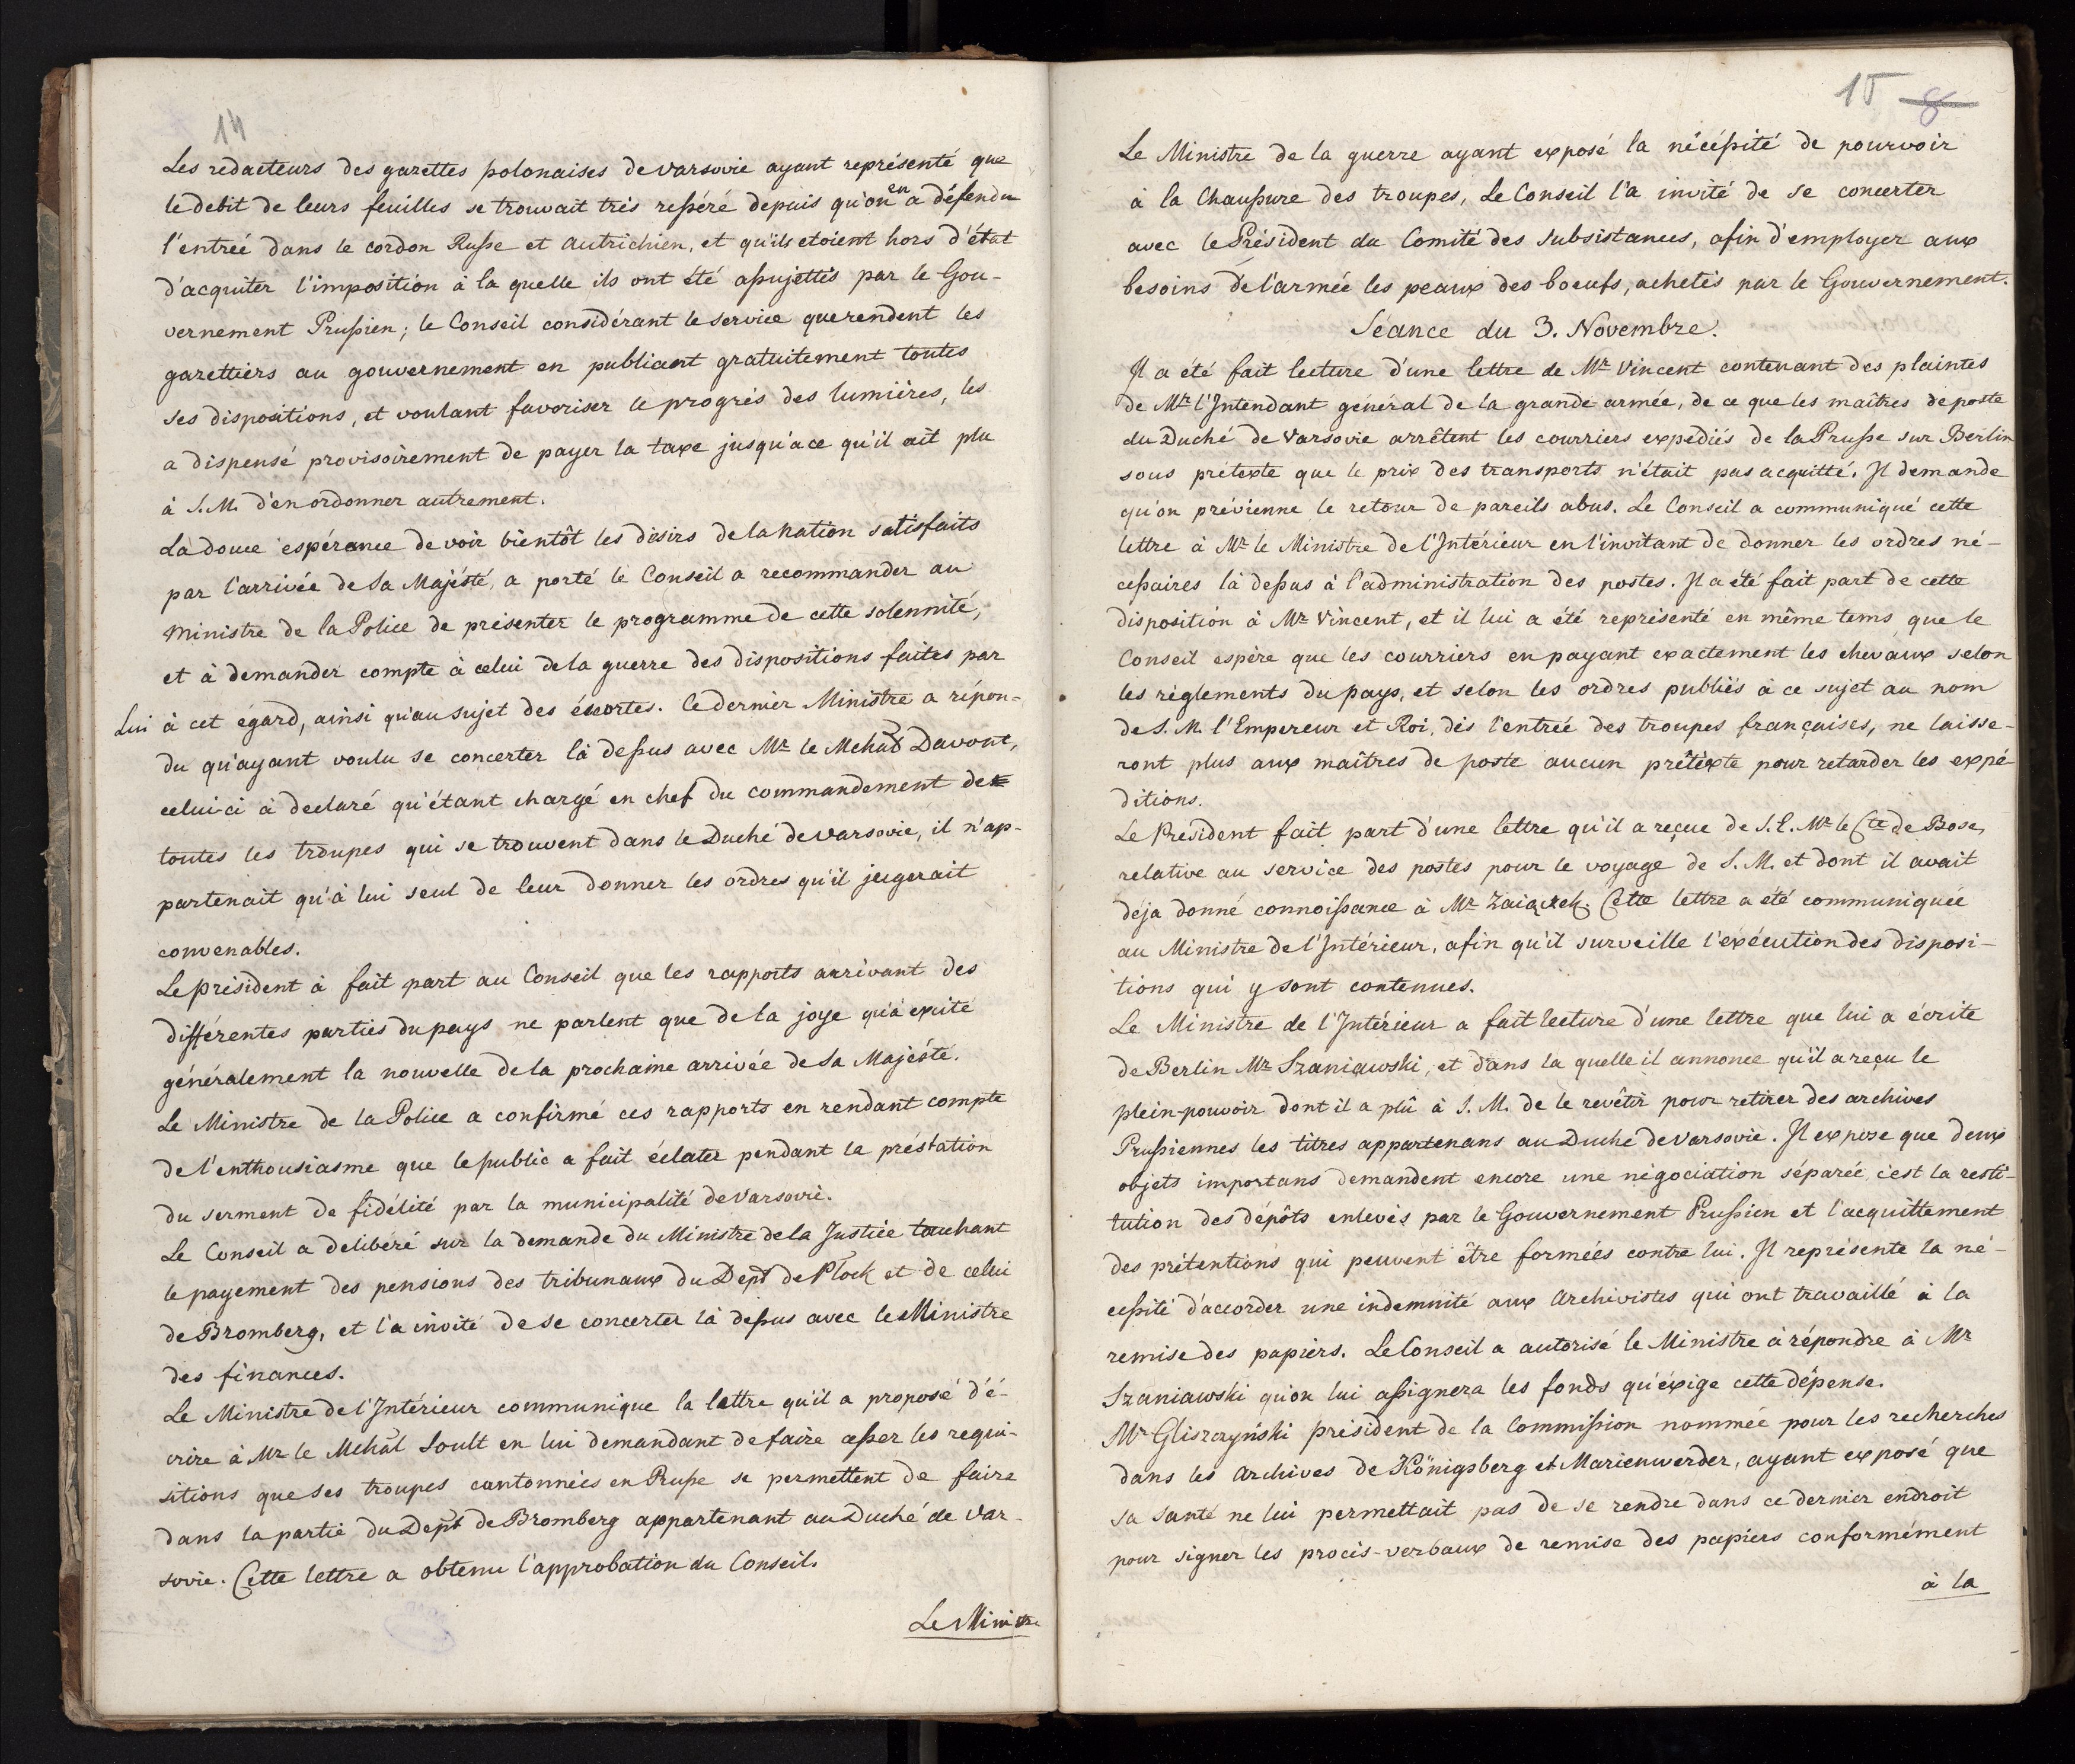 14
Les redacteurs des gazettes polonaises de varsovie ayant représenté que
le debit de leurs feuilles se trouvait très resséré depuis qu'on en a défendu
l'entrée dans le cordon Russe et autrichien, et qu'ils etoient hors d'état
d'acquiter l'imposition à la quelle ils ont été assujettis par le Gou-
vernement Prussien; le Conseil considérant le service que rendent les
gazettiers au gouvernement en publiant gratuitement toutes
ses dispositions, et voulant favoriser le progrès des lumières, les
a dispensé provisoirement de payer la taxe jusqu'a ce qu'il ait plu
à S.M. d'en ordonner autrement.
La douce espérance de voir bientôt les désirs de la nation satisfaits
par l'arrivée de Sa Majésté, a porté le Conseil a recommander au
Ministre de la Police de présenter le programme de cette solennité,
et à demander compte à celui de la guerre des dispositions faites par
Lui à cet égard, ainsi qu'au sujet des éscortes. Ce dernier Ministre a répon-
du qu'ayant voulu se concerter là dessus avec Mr le Mchal Davout,
celui-ci à declaré qu'étant chargé en chef du commandement de
toutes les troupes qui se trouvent dans le Duché de varsovie, il n'ap-
partenait qu'à lui seul de leur donner les ordres qu'il jugerait
convenables.
Le président à fait part au Conseil que les rapports arrivant des
différentes parties du pays ne parlent que de la joye qu'à excité
généralement la nouvelle de la prochaine arrivée de Sa Majésté.
Le Ministre de la Police a confirmé ces rapports en rendant compte
de l'enthousiasme que le public a fait éclater pendant la préstation
du serment de fidélité par la municipalité de Varsovie.
Le Conseil a delibéré sur la demande du Ministre de la Justice touchant
le payement des pensions des tribunaux du Dept de Plock et de celui
de Bromberg, et l'a invité de se concerter là dessus avec le Ministre
des finances.
Le Ministre de l'Intérieur communique la lettre qu'il a proposé d'é-
crire à Mr le Mchal Soult en lui demandant de faire cesser les requi-
sitions que ses troupes cantonnées en Prusse se permettent de faire
dans la partie du Dept de Bromberg appartenant au Duché de Var-
sovie. Cette lettre a obtenu l'approbation du Conseil.
Le Ministre
15 8
Le Ministre de la guerre ayant exposé la nécéssité de pourvoir
à la Chaussure des troupes, Le Conseil l'a invité de se concerter
avec le Président du Comité des subsistances, afin d'employer aux
besoins de l'armée les peaux des boeufs, achetés par le Gouvernement.
Séance du 3. Novembre.
Il a été fait lecture d'une lettre de Mr Vincent contenant des plaintes
de Mr l'Intendant général de la grande armée, de ce que les maîtres de poste
du Duché de Varsovie arrêtent les courriers expediés de la Prusse sur Berlin
sous prétexte que le prix des transports n'était pas acquitté. Il demande
qu'on prévienne le retour de pareils abus. Le Conseil a communiqué cette
lettre à Mr le Ministre de l'Intérieur en l'invitant de donner les ordres né-
cessaires là dessus à l'administration des postes. Il a été fait part de cette
disposition à Mr Vincent, et il lui a été représenté en même tems que le
Conseil espère que les courriers en payant exactement les chevaux selon
les règlements du pays, et selon les ordres publiés à ce sujet au nom
de S.M. l'Empereur et Roi, dès l'entrée des troupes françaises, ne laisse-
ront plus aux maîtres de poste aucun prétèxte pour retarder les expé-
ditions.
Le Président fait part d'une lettre qu'il a reçue de S.E. Mr le Cte de Bose,
relative au service des postes pour le voyage de S.M. et dont il avait
déja donné connoissance à Mr Zaiączek. Cette lettre a été communiquée
au Ministre de l'Intérieur, afin qu'il surveille l'exécution des disposi-
tions qui y sont contenues.
Le Ministre de l'Intérieur a fait lecture d'une lettre que lui a écrite
de Berlin Mr Szaniawski, et dans la quelle il annonce qu'il a reçu le
plein-pouvoir dont il a plû à S.M. de le revêtir pour retirer des archives
Prussiennes les titres appartenans au Duché de Varsovie. Il expose que deux
objets importans demandent encore une négociation séparée, c'est la resti-
tution des dépôts enlevés par le Gouvernement Prussien et l'acquittement
des prétentions qui peuvent être formées contre lui. Il représente la né-
cessité d'accorder une indemnité aux Archivistes qui ont travaillé à la
remise des papiers. Le Conseil a autorisé le Ministre à répondre à Mr
Szaniawski qu'on lui assignera les fonds qu'éxige cette dépense.
Mr Gliszczyński président de la Commission nommée pour les recherches
dans les Archives de Königsberg et Marienwerder, ayant exposé que
sa santé ne lui permettait pas de se rendre dans ce dernier endroit
pour signer les procès-verbaux de remise des papiers conformément
à la